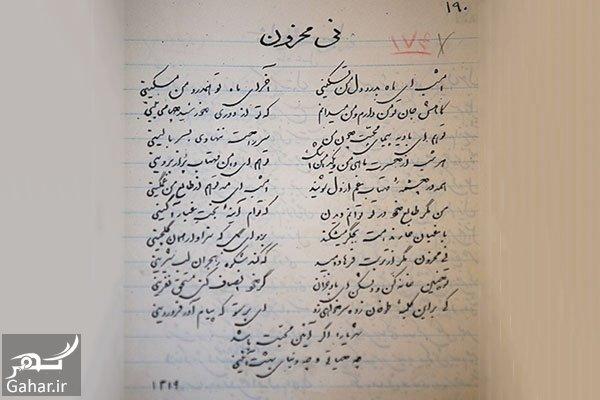 ۱۹۰
۲۷۱
نی محزون
امشب ای ماه بدرد دل من تسکینی آخر ای ماه تو همدرد من مسکینی
کاهش جان تو من دارم و من میدانم که تو از دوری خورشید چها می‌بینی
تو هم ای بادیه پیمای محبت چون من سر راحت ننهادی بسر بالینی
هر شب از حسرت ماهی من و یک دامن اشک تو هم ای دامن مهتاب پر از پروینی
همه در چشمهٔ مهتاب غم از دل شویند امشب ای مه تو هم از طالع من غمگینی
من مگر طالع خود در تو توانم دیدن که توام آینهٔ بخت غبار آگینی
باغبان خار ندامت بجگر میشکند برو ای گل که سزاوار همان گلچینی
نی محزون مگر از تربت فرهاد دمید که کند شکوه ز هجران لب شیرینی
تو چنین خانه کن و دلشکن ای باد خزان گر خود انصاف کنی مستحق نفرینی
کی بر این کلبهٔ طوفان زده سر خواهی زد ای پرستو که پیام آور فروردینی
شهریارا اگر آئین محبت باشد
چه حیاتی و چه دنیای بهشت آئینی
۱۳۱۹
گهر
Gahar.ir